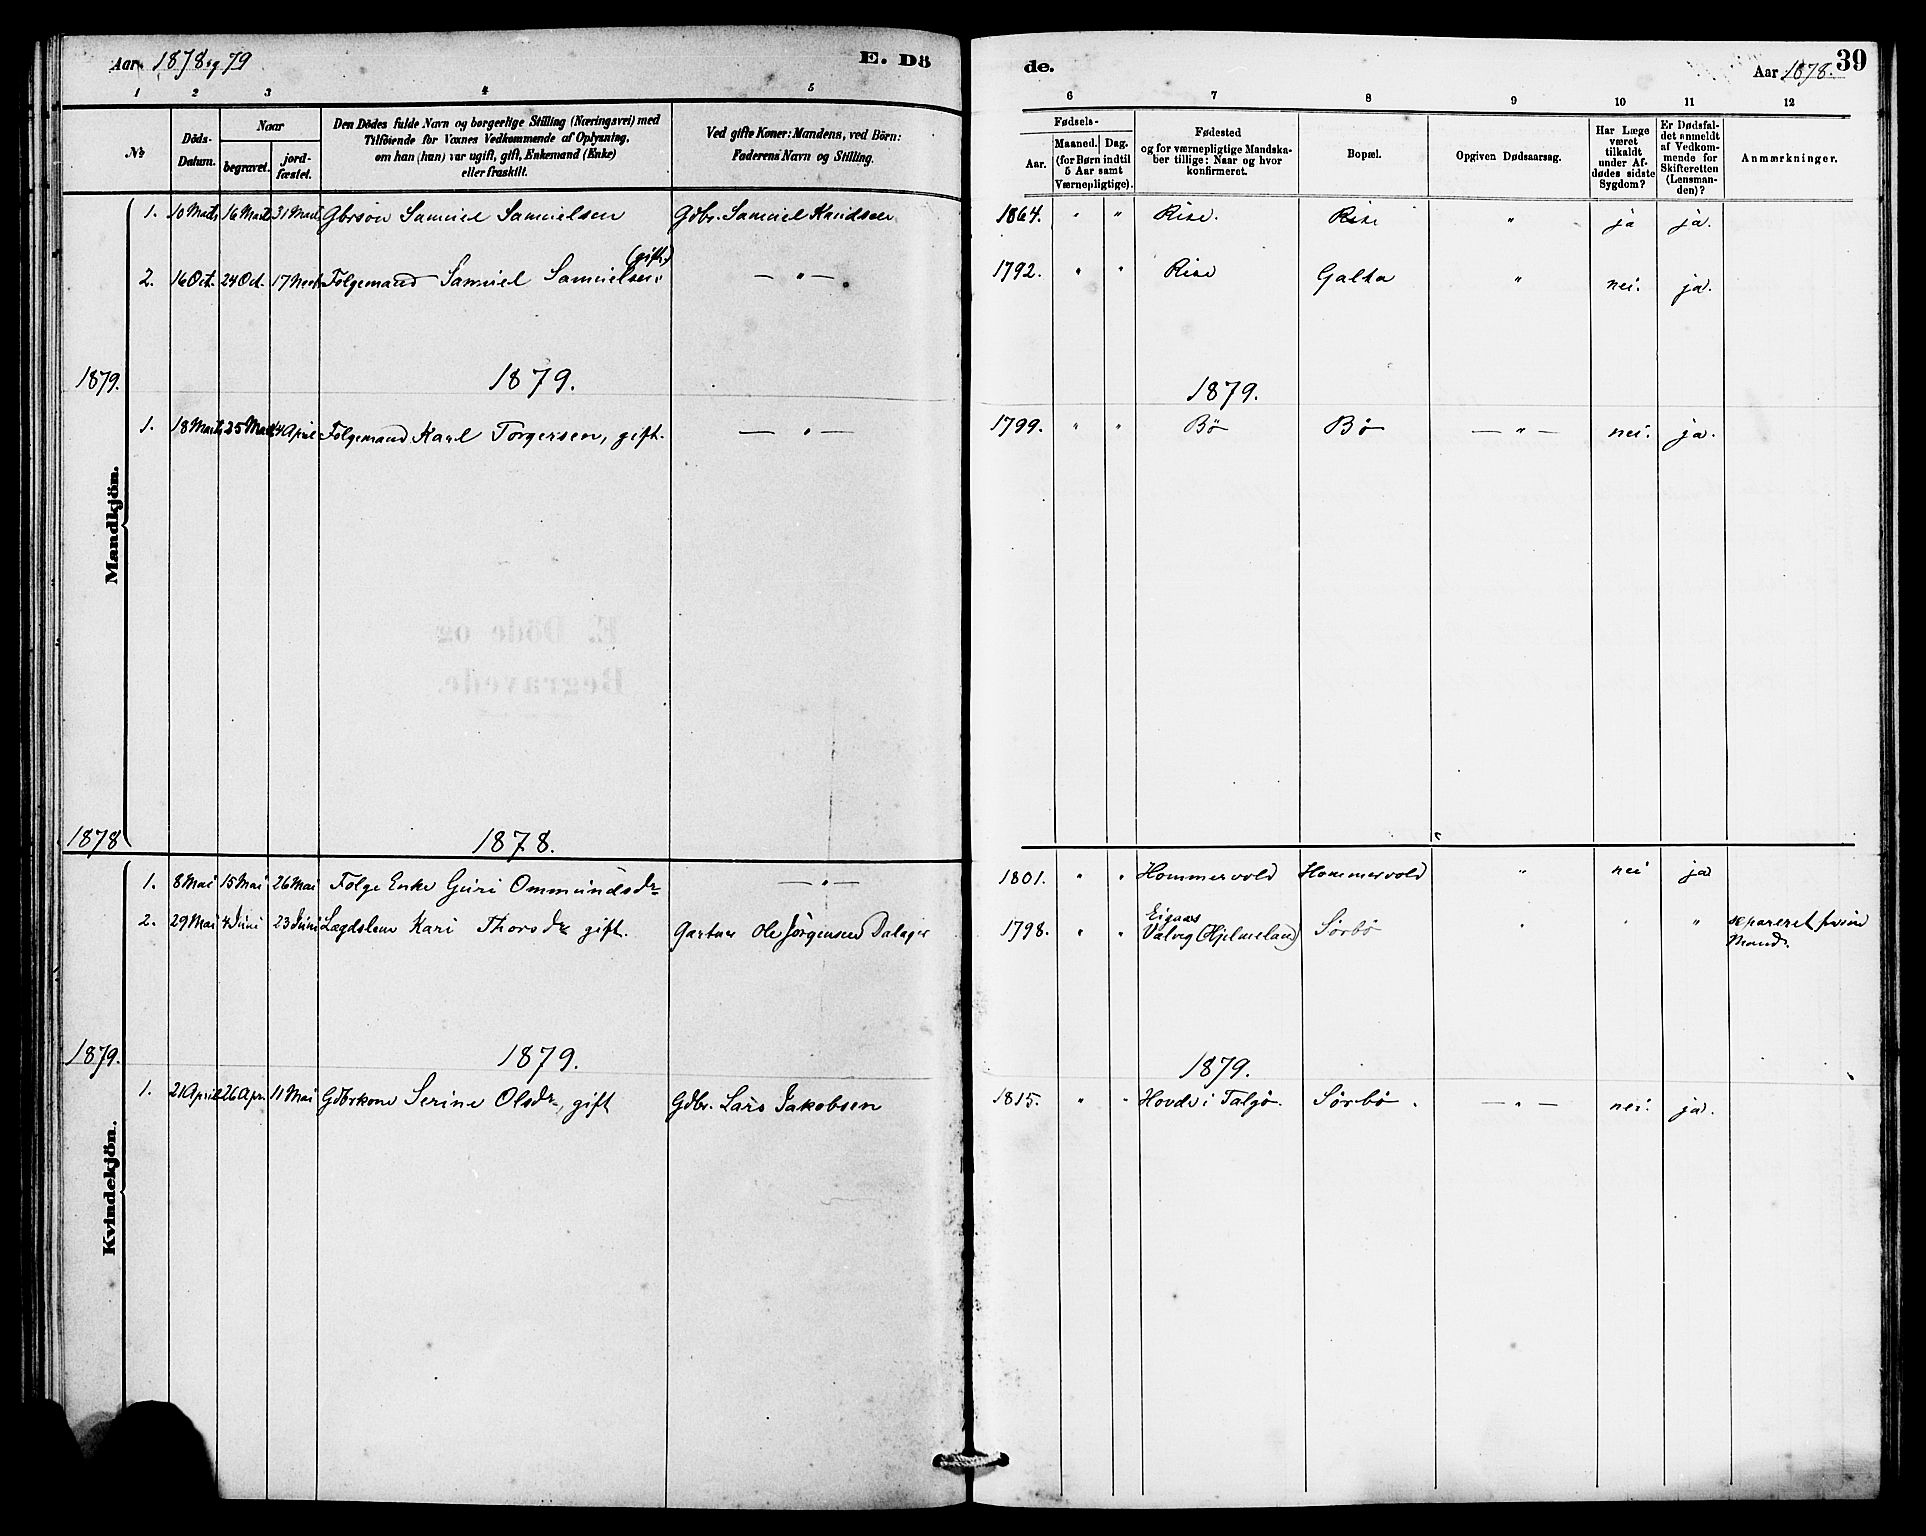 Aar 1878 og 79
E. Dö
de.
Aar 1878.
39
1 2 3 4 5 6 7 8 9 10 11 12
№
Döds-Datum.
Naar
begravet.
jord-fæstet.
Den Dödes fulde Navn og borgerlige Stilling (Næringsvei) med
Tilföiende for Voxnes Vedkommende af Oplysning,
om han (hun) var ugift, gift, Enkemand (Enke)
eller fraskilt.
Ved gifte Koner: Mandens, ved Börn:
Faderens Navn og Stilling.
Fødsels-
Aar.
Maaned. Dag.
(for Børn indtil
5 Aar samt
Værnepligtige).
Fødested
og for værnepligtige Mandska-
ber tillige: Naar og hvor
konfirmeret.
Bopæl.
Opgiven Dødsaarsag.
Har Læge
været
tilkaldt
under Af-
dødes sidste
Sygdom?
Er Dødsfal-
det anmeldt
af Vedkom-
mende for
Skifteretten
(Lensman-
den)?
Anmærkninger.
Mandkjön.
1. 10 Marts 16 Marts 31 Marts Gbrsøn Samuel Samuelsen Gdbr. Samuel Knudsen 1864. " " Rise. Rise " ja ja.
(gift)
2. 16 Oct. 24 Oct. 17 Folgemand Samuel Samuelsen — " — 1792. " " Rise Galta " nei. ja.
1879. 1879. 1879.
1. 18 Marts 25 Marts 4 April Folgemand Karl Torgersen, gift. — " — 1799. " " Bø Bø — " — nei. ja.
1878 1878.
Kvindekjön.
1. 8 Mai 15 Mai 26 Mai Folge Enke Guri Ommundsdr — " — 1801. " " Hommervold Hommervold " nei ja
2. 29 Mai 4 Juni 23 Juni Lægdslem Kari Thorsdr gift. Gartner Ole Jørgensen Dalager 1798. " " Eigaas
Valvig (Hjelmeland) Sørbø " " " separeret fra sin
Mand.
1879. 1879. 1879.
1. 21 April 26 Apr. 11 Mai Gdbrkone Serine Olsdr, gift Gdbr. Lars Jakobsen 1815. " " Hovde i Talgø. Sørbø. — " — nei. ja.